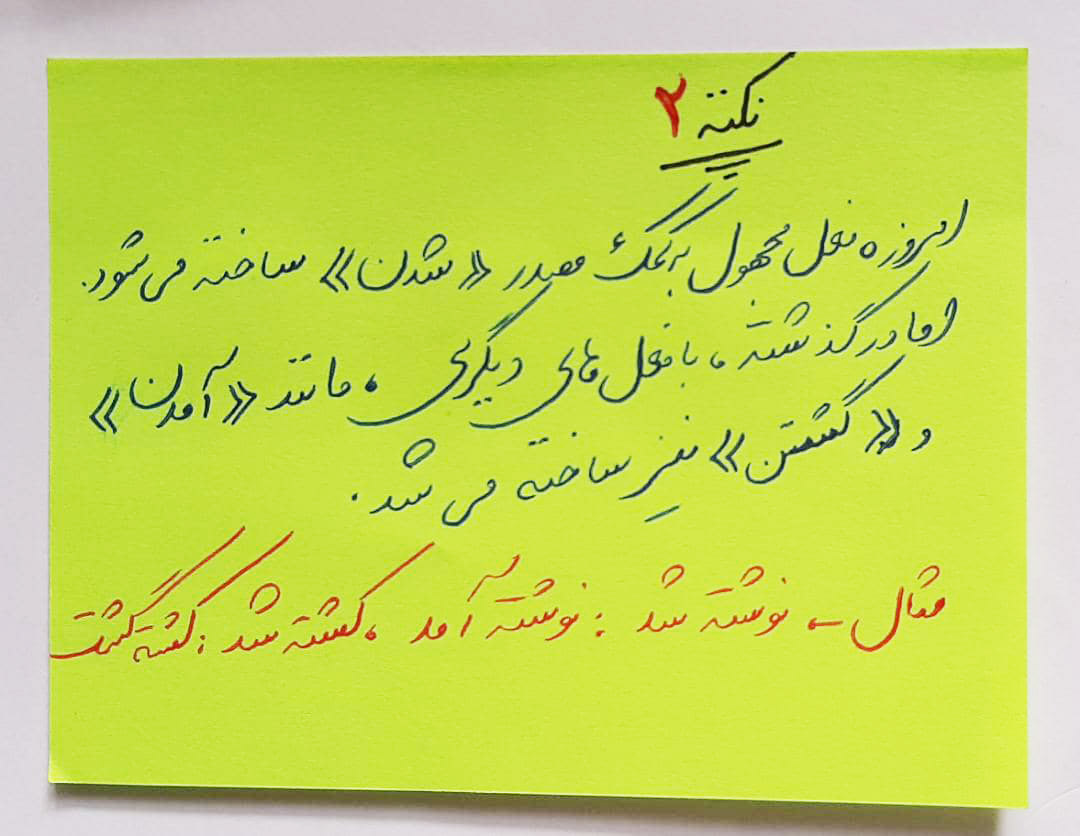 نکته ۲
امروزه فعل مجهول به کمک مصدر «شدن» ساخته می شود.
اما در گذشته ، با فعل های دیگری ، مانند «آمدن»
و «گشتن» نیز ساخته می شد .
مثال ← نوشته شد : نوشته آمد ، کشته شد : کشته گشت